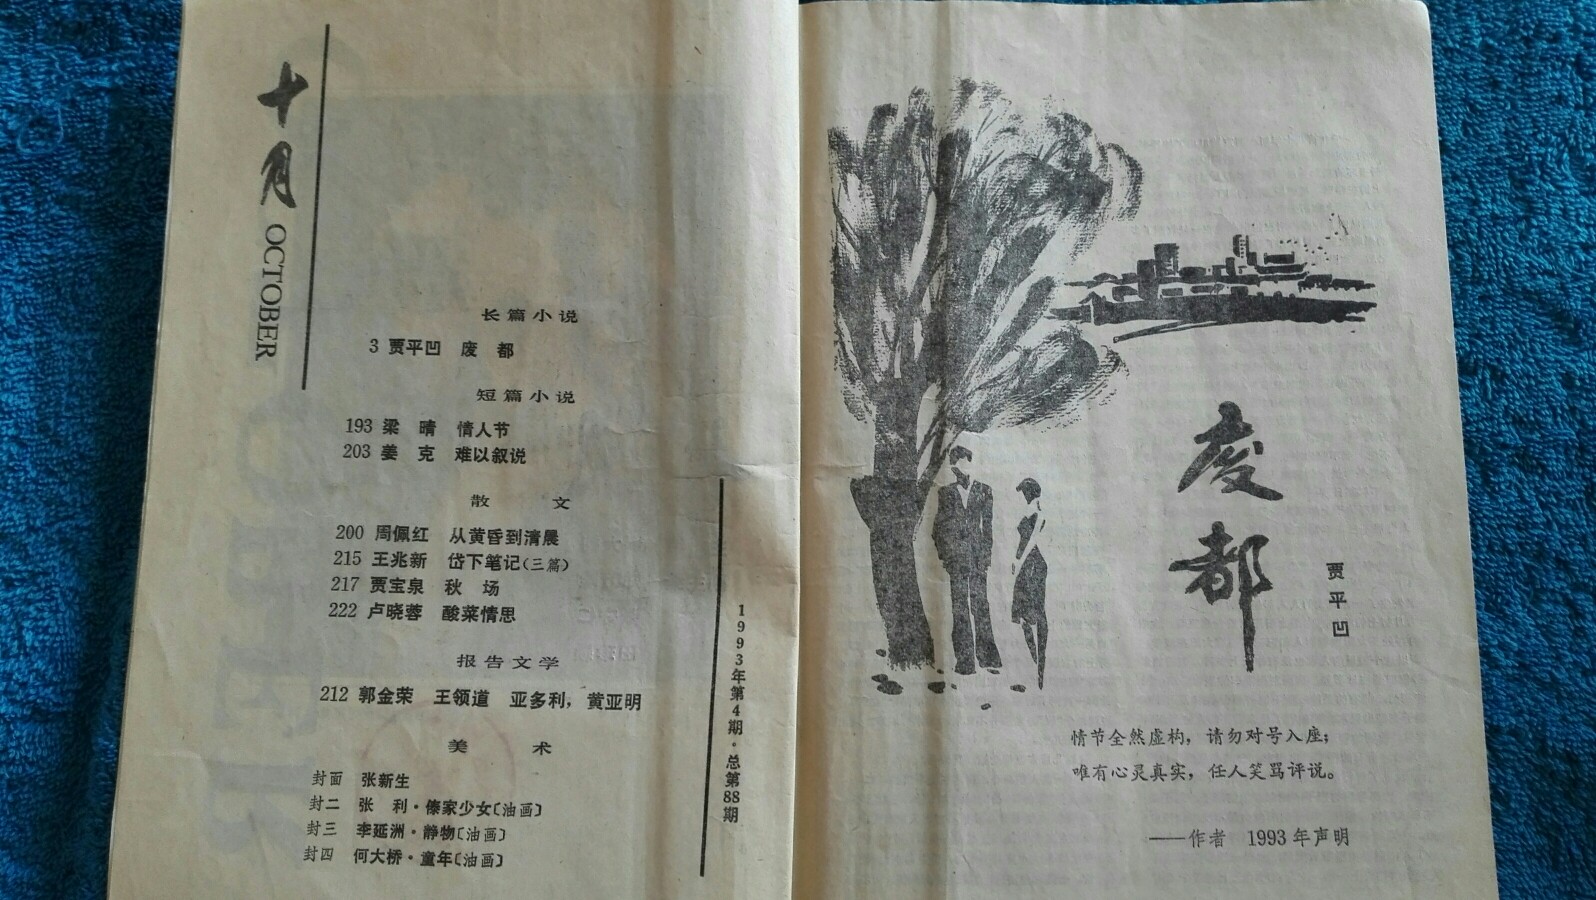 十月
OCTOBER
长篇小说
3 贾平凹 废 都
短篇小说
193 梁 晴 情人节
203 姜 克 难以叙说
散 文
200 周佩红 从黄昏到清晨
215 王兆新 岱下笔记(三篇)
217 贾宝泉 秋 场
222 卢晓蓉 酸菜情思
报告文学
212 郭金荣 王领道 亚多利，黄亚明
美 术
封面 张新生
封二 张 利·傣家少女〔油画〕
封三 李延洲·静物〔油画〕
封四 何大桥·童年〔油画〕
1993年第4期·总第88期
废都
贾平凹
情节全然虚构，请勿对号入座；
唯有心灵真实，任人笑骂评说。
——作者 1993年声明